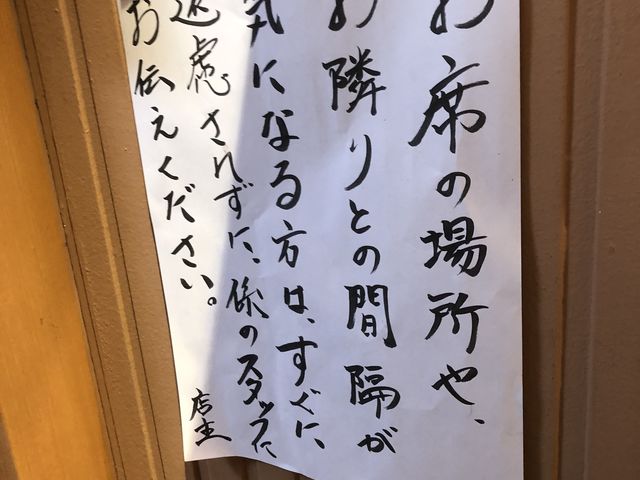 お席の場所や、
お隣りとの間隔が
気になる方は、すぐに、
遠慮されずに、係のスタッフに
お伝えください。
店主